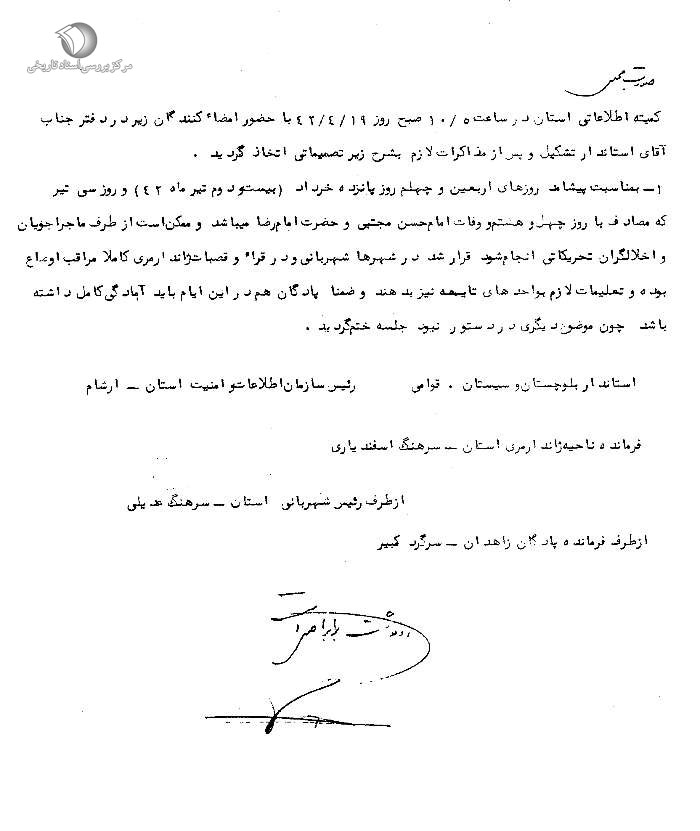 مرکز بررسی اسناد تاریخی
کمیته اطلاعاتی استان در ساعت ۱۰/۵ صبح روز ۴۲/۴/۱۹ با حضور امضاء کنندگان زیر در دفتر جناب
آقای استاندار تشکیل و پس از مذاکرات لازم بشرح زیر تصمیماتی اتخاذ گردید .
۱ـ بمناسبت پیشامد روزهای اربعین و چهلم روز پانزده خرداد (بیست و دوم تیر ماه ۴۲) و روز سی تیر
که مصادف با روز چهل و هشتم و وفات امام حسن مجتبی و حضرت امام رضا میباشد و ممکن است از طرف ماجراجویان
و اخلالگران تحریکاتی انجام شود قرار شد در شهرها شهربانی و در قراء و قصبات ژاندارمری کاملا مراقب اوضاع
بوده و تعلیمات لازم بواحدهای تابعه نیز بدهند و ضمنا پادگان هم در این ایام باید آمادگی کامل داشته
باشد چون موضوع دیگری در دستور نبود جلسه ختم گردید .
استاندار بلوچستان و سیستان . قوامی رئیس سازمان اطلاعات و امنیت استان ـ ارشام
فرمانده ناحیه ژاندارمری استان ـ سرهنگ اسفندیاری
از طرف رئیس شهربانی استان ـ سرهنگ عدیلی
از طرف فرمانده پادگان زاهدان ـ سرگرد کبیر
رونوشت برابر اصل است